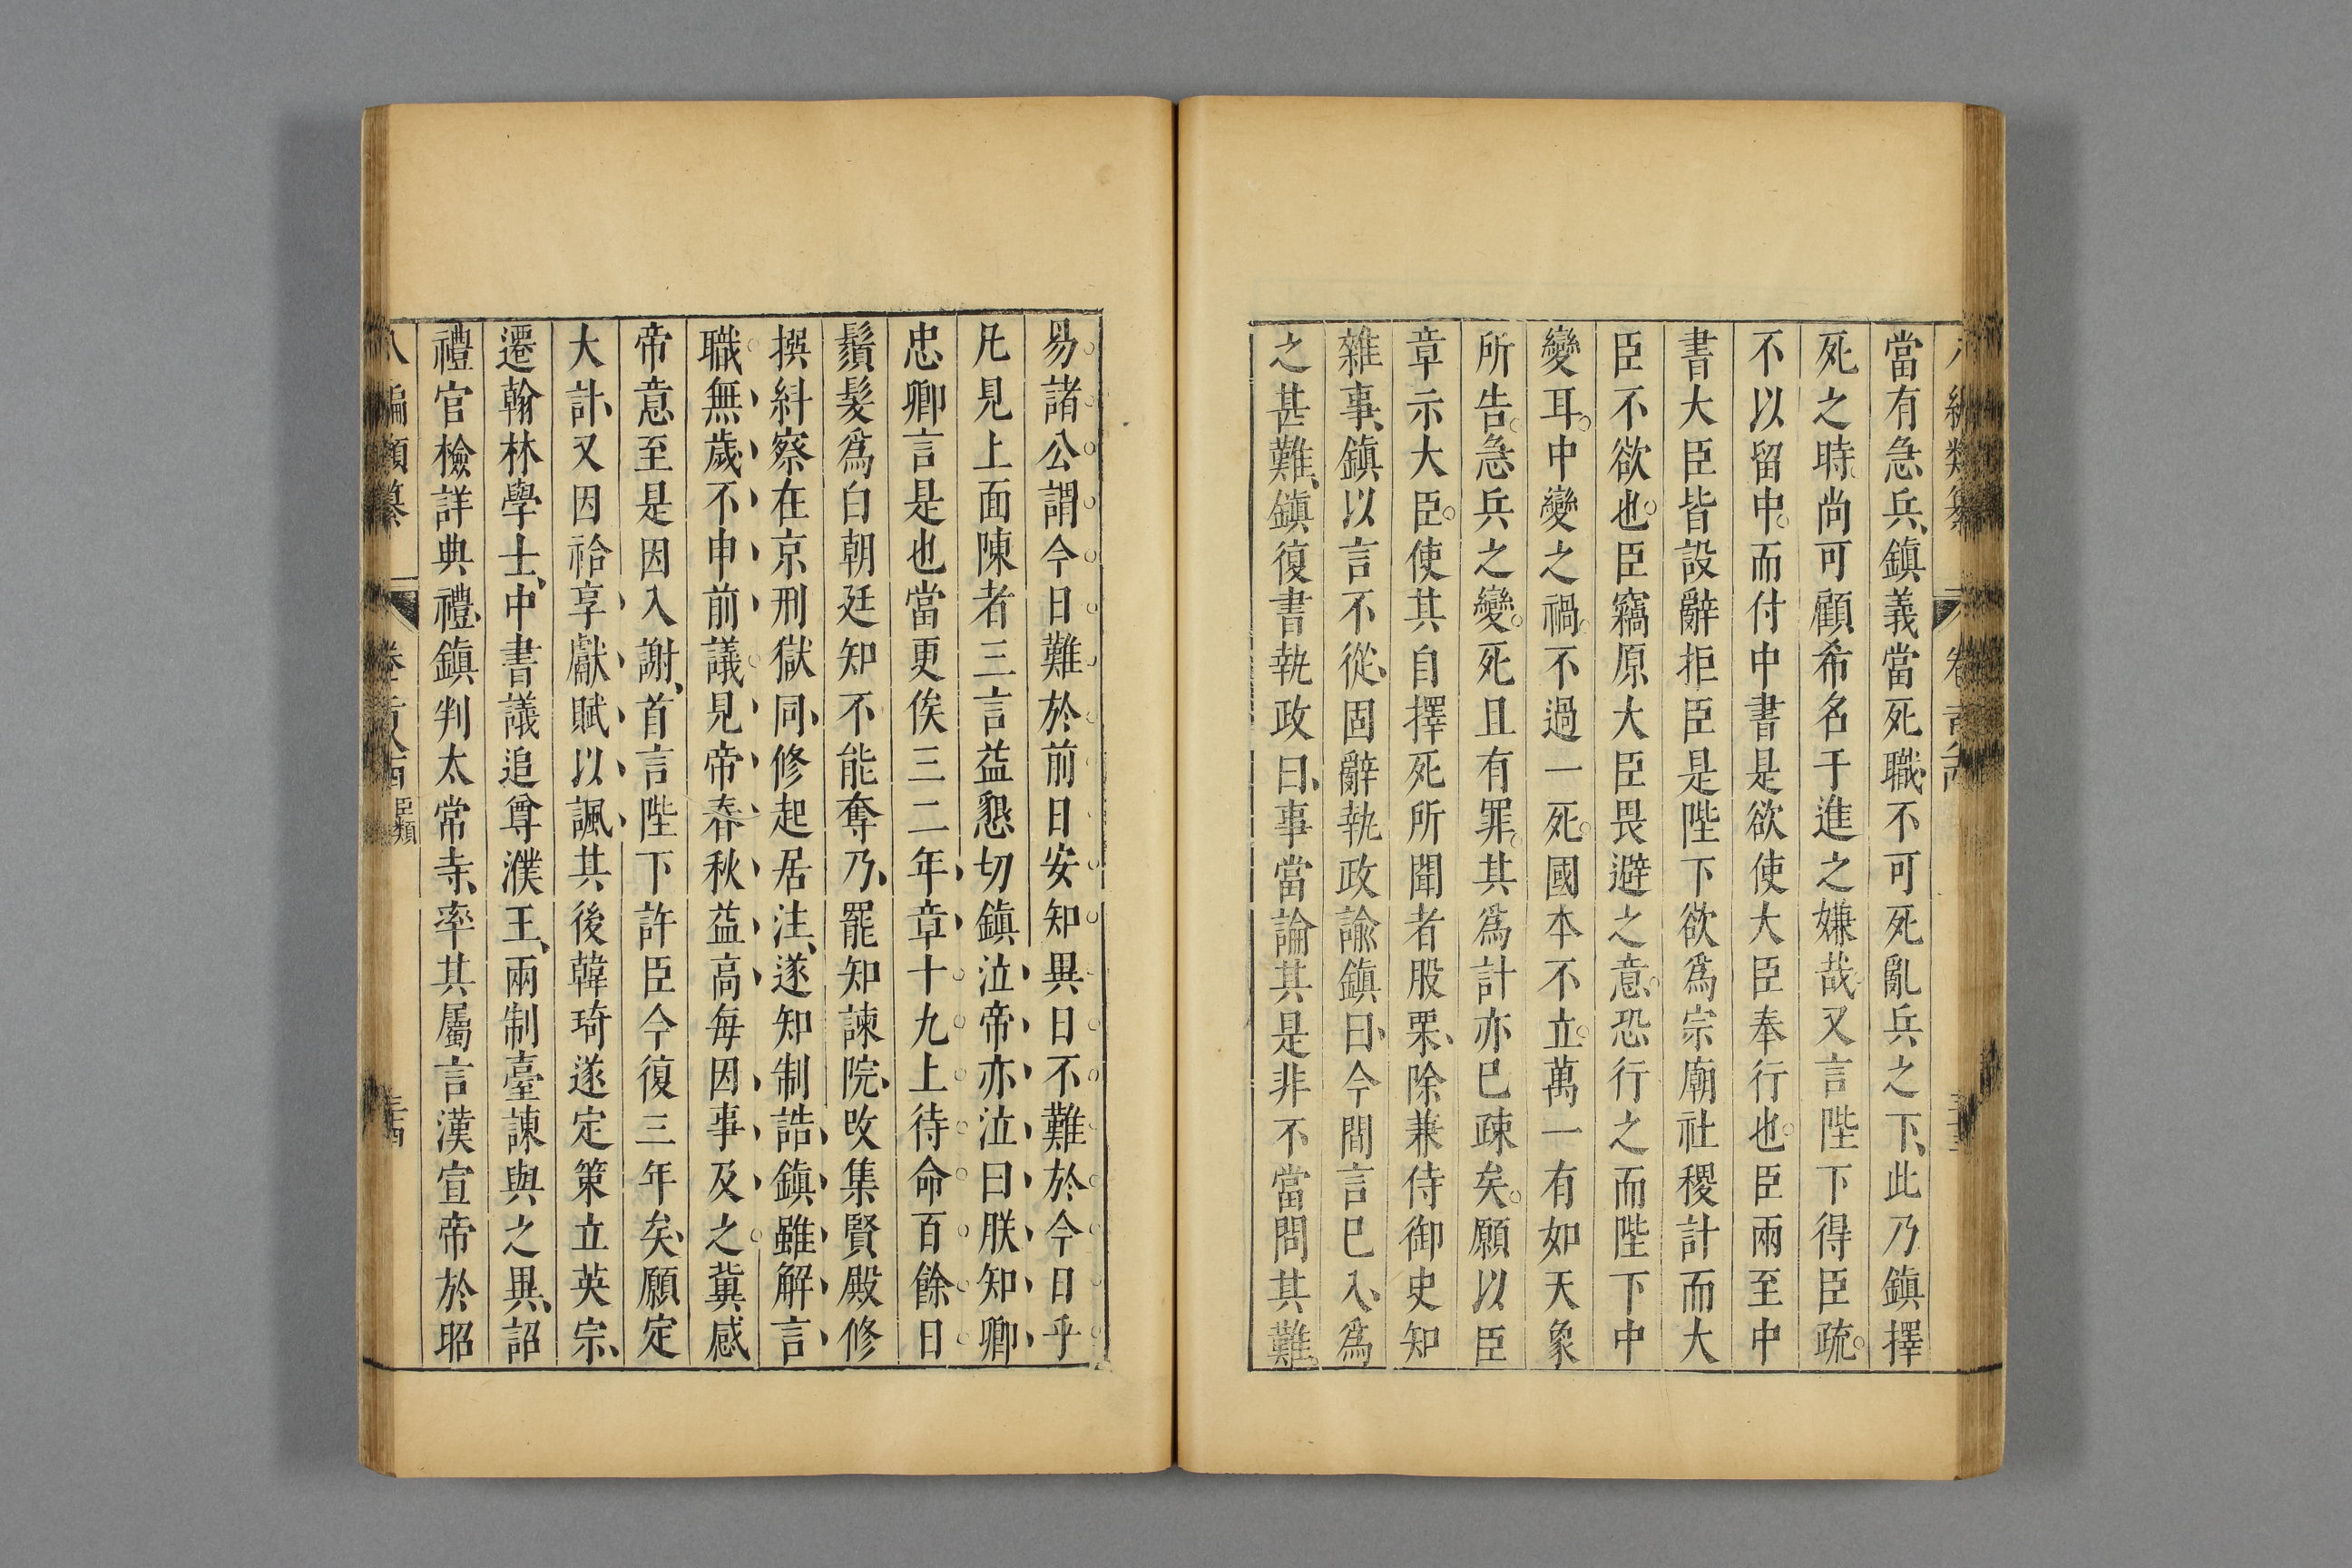 當有急兵、鎮義當死職、不可死亂兵之下、此乃鎮擇
死之時、尚可顧希名于進之嫌哉、又言陛下得臣疏。
不以留中。而付中書是欲使大臣奉行也。臣兩至中
書大臣皆設辭拒臣是陛下欲爲宗廟社稷計而大
臣不欲也。臣竊原大臣畏避之意。恐行之而陛下中
變耳。中變之禍。不過一死。國本不立。萬一有如天象
所告。急兵之變。死且有罪。其爲計亦巳疎矣。願以臣
章示大臣。使其自擇死所聞者股栗、除兼侍御史知
雜事、鎮以言不從、固辭執政諭鎮曰、今間言巳入、爲
之甚難、鎮復書執政曰、事當論其是非不當問其難。
易諸公謂今日難於前日安知異日不難於今日乎
凡見上面陳者三言益懇切鎮泣帝亦泣曰朕知卿
忠卿言是也當更俟三二年、章十九上待命百餘日
鬚髮爲白朝廷知不能奪乃、罷知諫院、改集賢殿修
撰糾察在京刑獄同、修起居注、遂知制誥鎮雖解言
職無歲不申前議見帝春秋益高每因事及之冀感
帝意至是因入謝、首言陛下許臣今復三年矣、願定
大計、又因祫享獻賦以諷其後韓琦遂定策立英宗、
遷翰林學士、中書議追尊濮王、兩制臺諫與之異、詔
禮官檢詳典禮、鎮判太常寺、率其屬言漢宣帝於昭
八編類纂 臣類